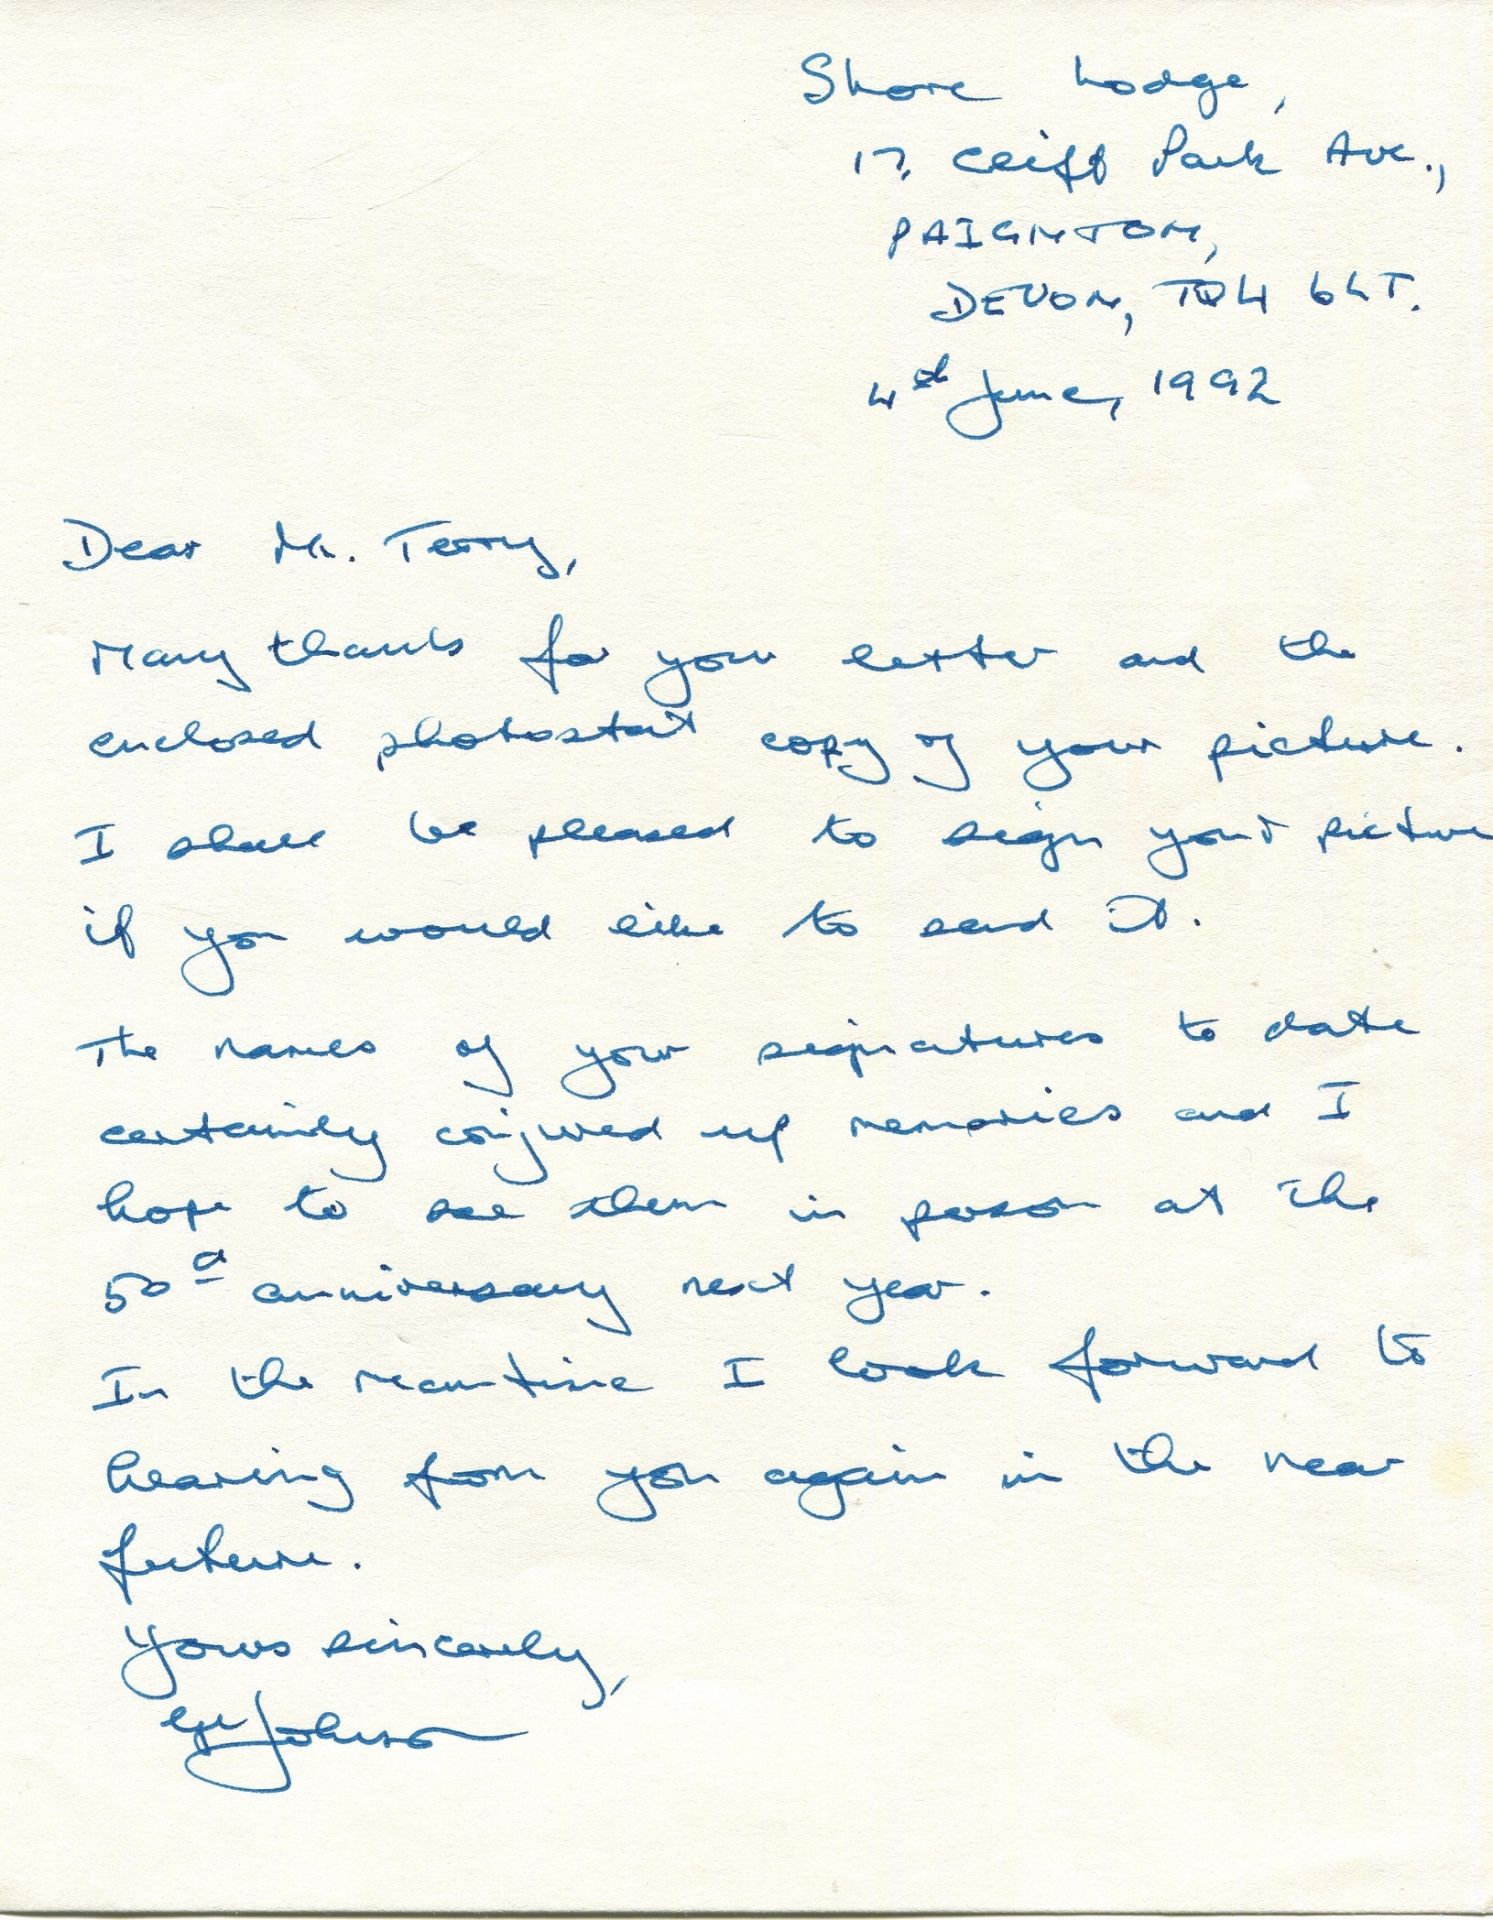 Shore Lodge,
17, Cliff Park Ave.,
PAIGNTON,
DEVON, TQ4 6LT.
4th June, 1992
Dear Mr. Terry,
Many thanks for your letter and the
enclosed photostat copy of your picture.
I shall be pleased to sign your picture
if you would like to send it.
The names of your signatures to date
certainly conjured up memories and I
hope to see them in person at the
50th anniversary next year.
In the meantime I look forward to
hearing from you again in the near
future.
Yours sincerely,
Johnson